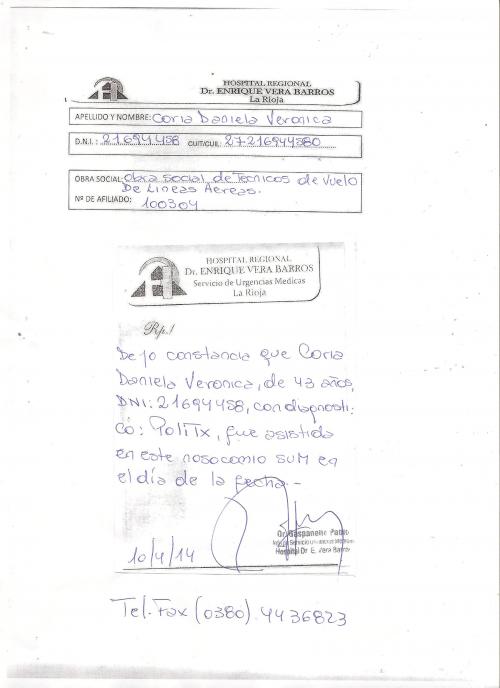 HOSPITAL REGIONAL
Dr. ENRIQUE VERA BARROS
La Rioja
APELLIDO Y NOMBRE: Coria Daniela Veronica
D.N.I.: 21694458 CUIT/CUIL: 27216944580
OBRA SOCIAL: Obra social de Tecnicos de Vuelo
De Lineas Aereas.
Nº DE AFILIADO: 100304
HOSPITAL REGIONAL
Dr. ENRIQUE VERA BARROS
Servicio de Urgencias Medicas
La Rioja
Rp./
Dejo constancia que Coria
Daniela Veronica, de 43 años,
DNI: 21694458, con diagnosti:
co: PoliTx, fue asistida
en este nosocomio SUM en
el día de la fecha.-
Dr. Gaspanello Pablo
Hospital Dr. E. Vera Barros
10/4/14
Tel. Fax (0380) 4436823